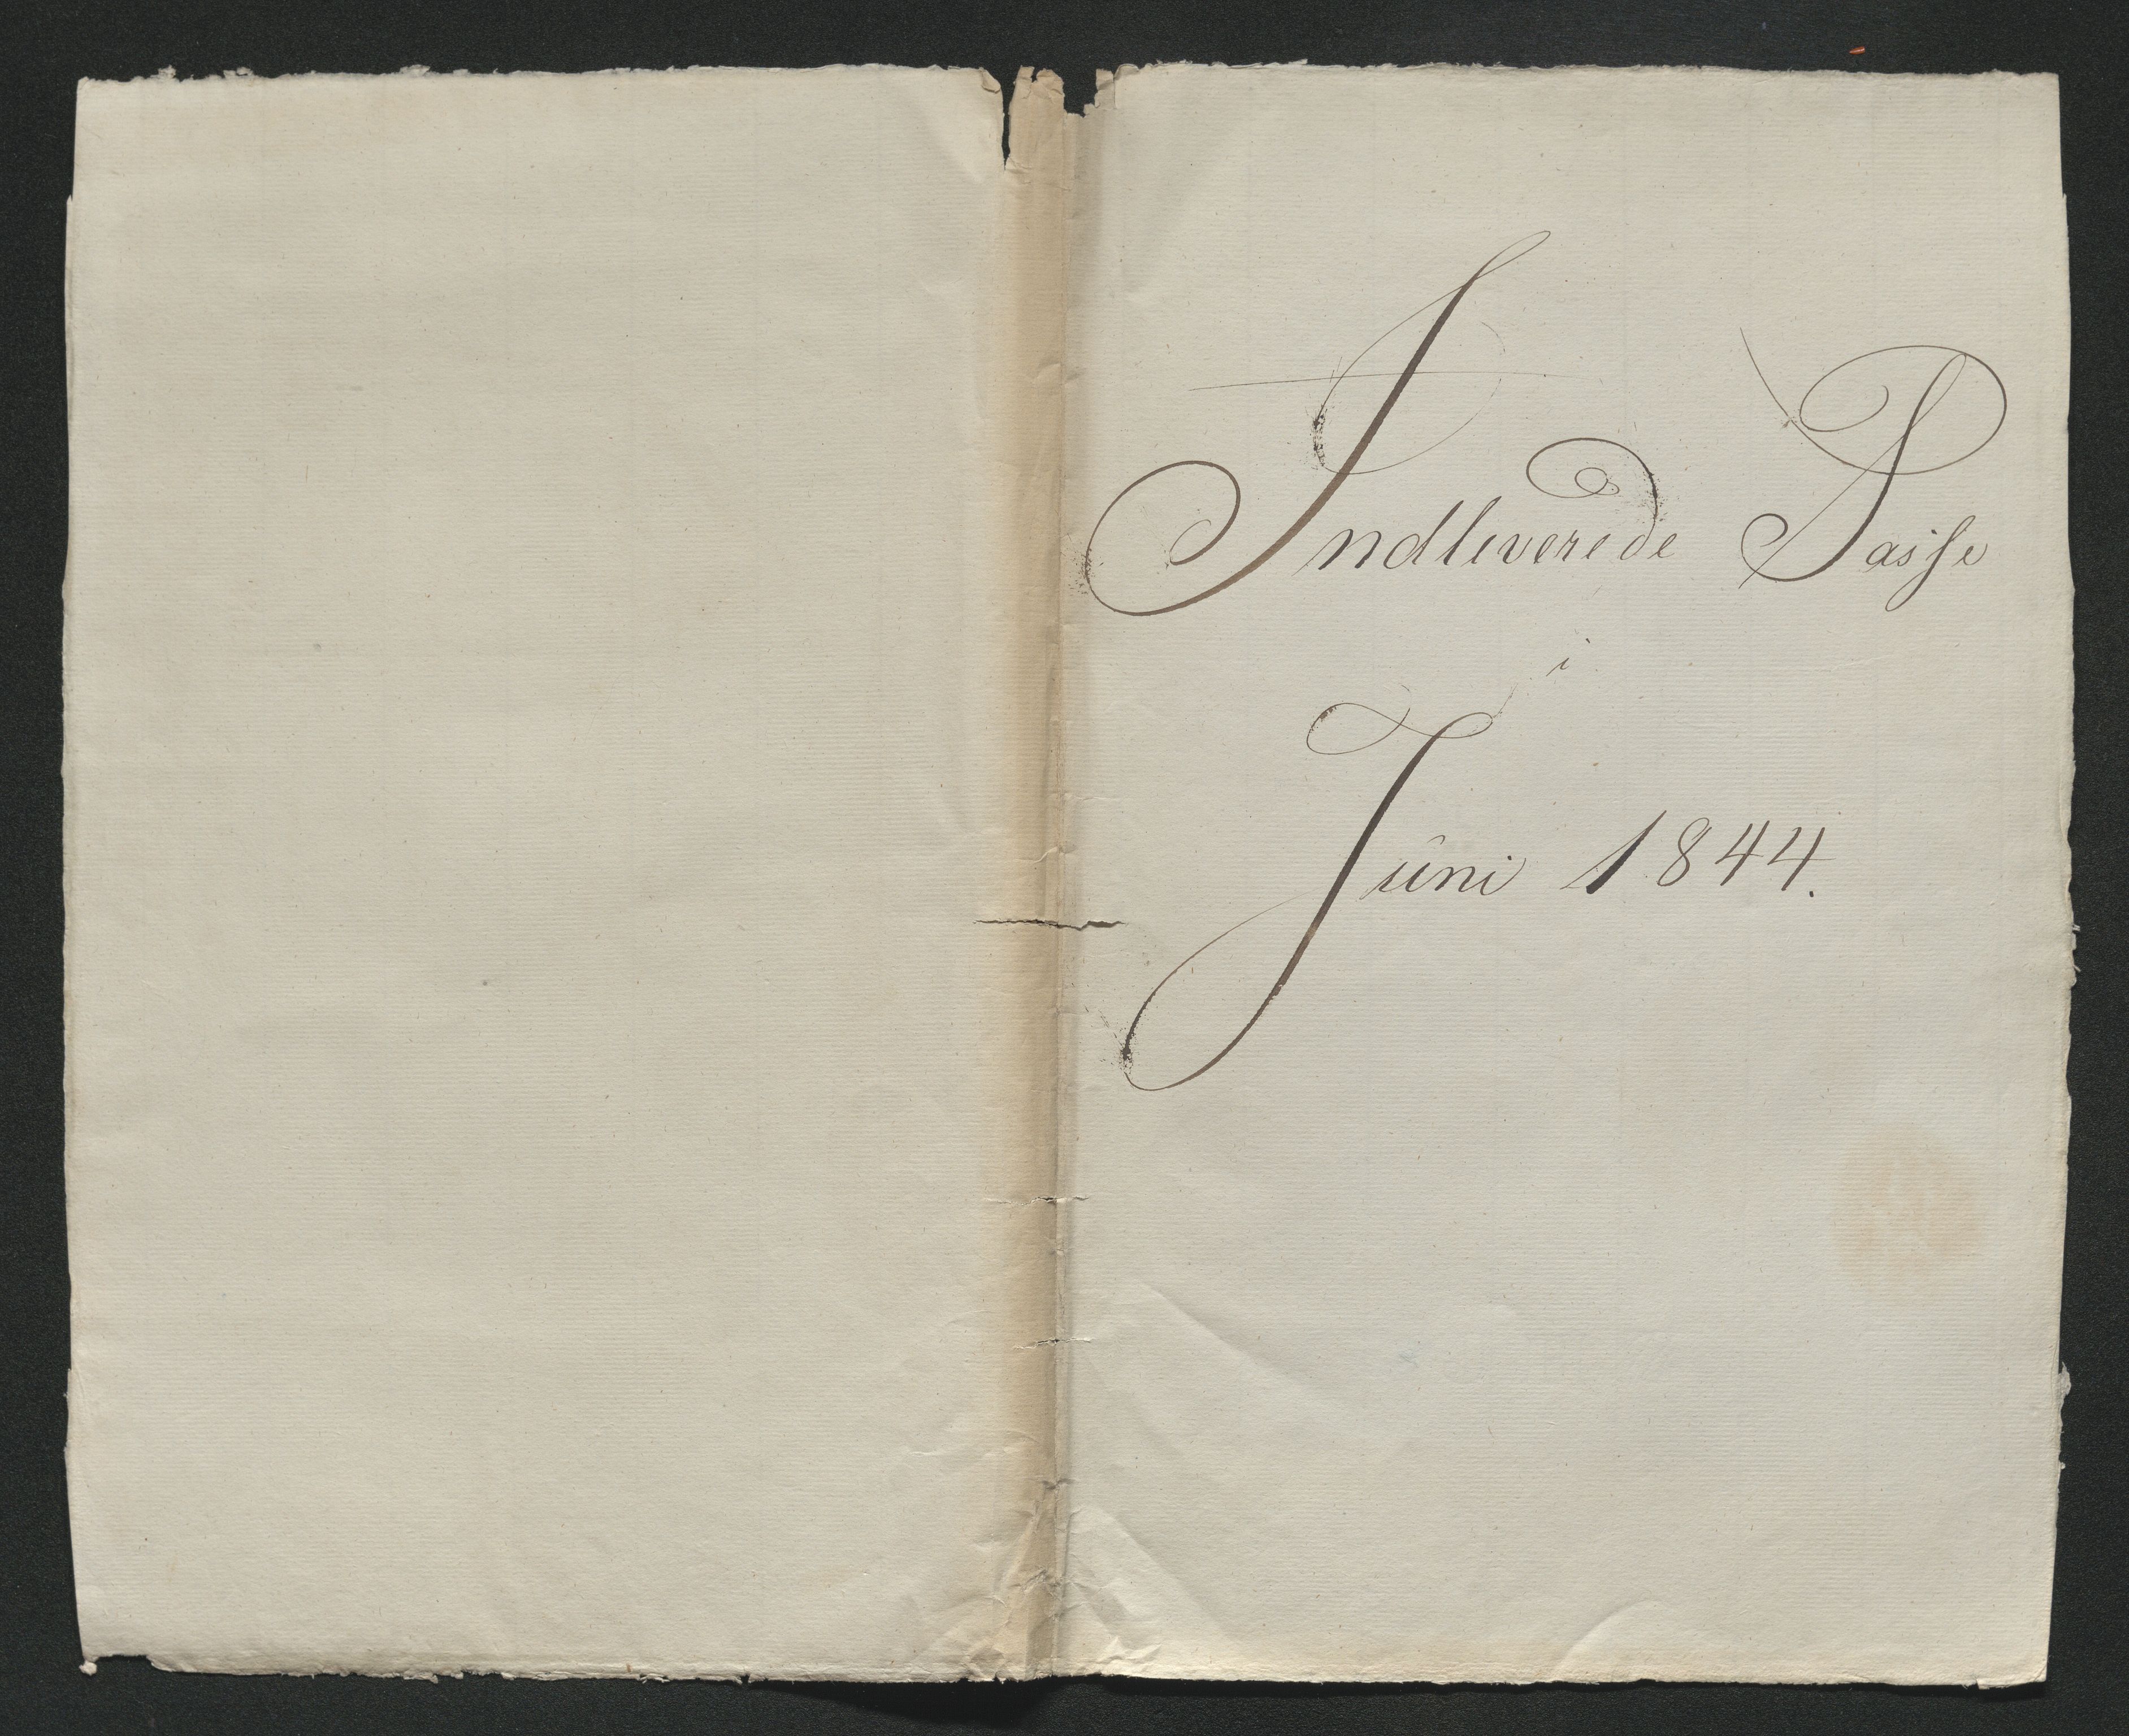 Indleverede Passe
i
Juni 1844.